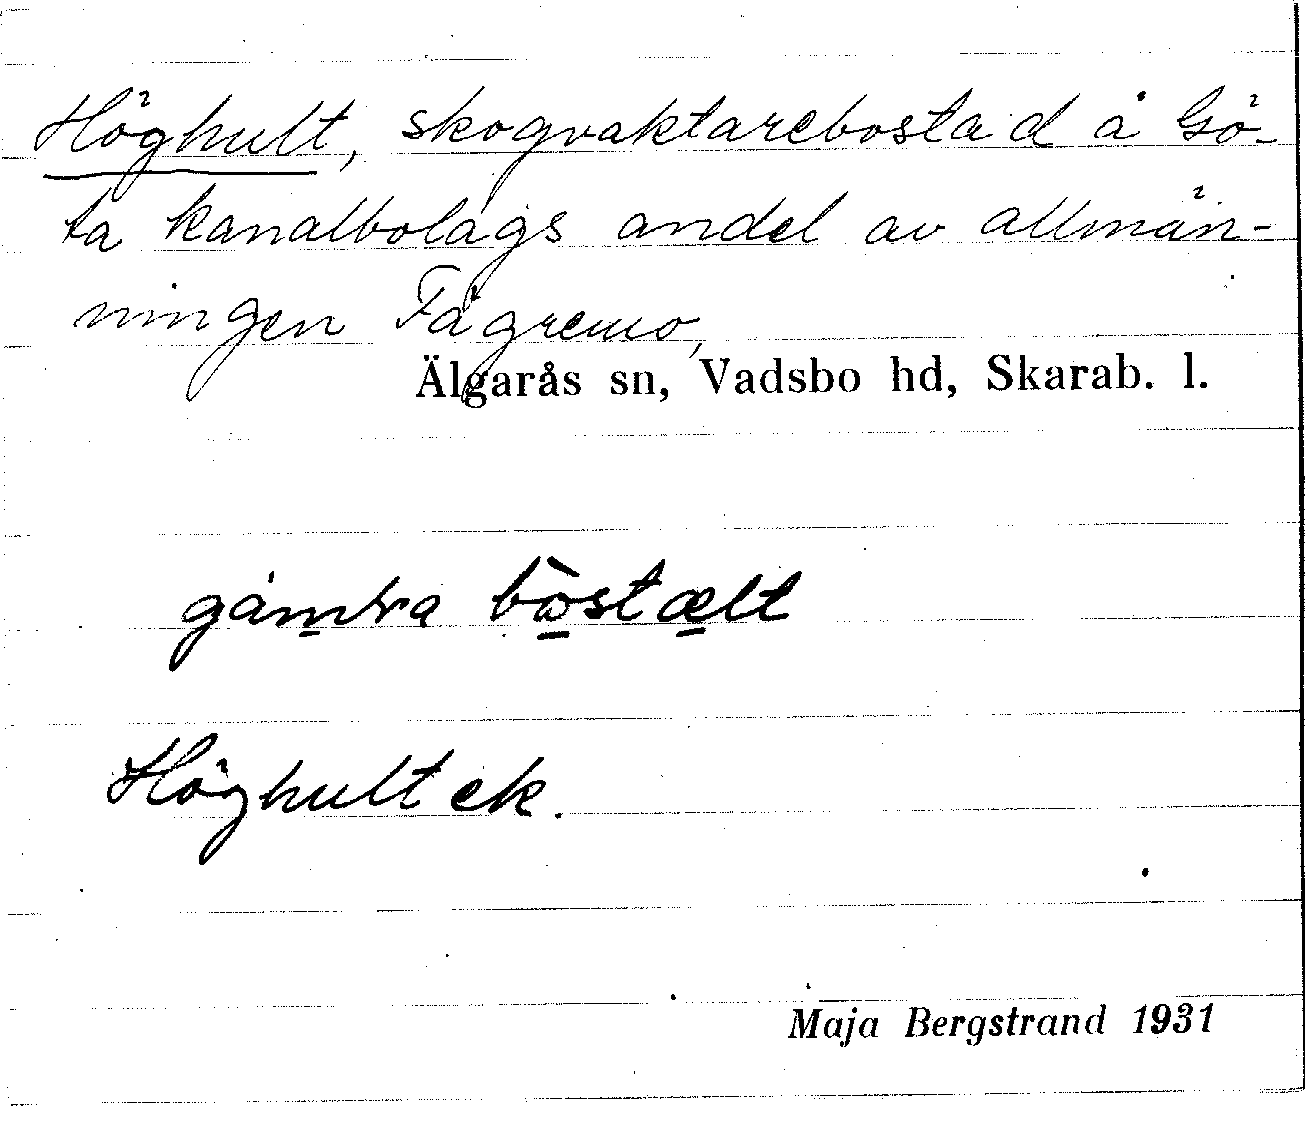 Höghult, skogvaktarebostad å Gö-
ta kanalbolags andel av allmän-
ningen Fägremo,
Älgarås sn, Vadsbo hd, Skarab. l.
Höghult ek.
Maja Bergstrand 1931